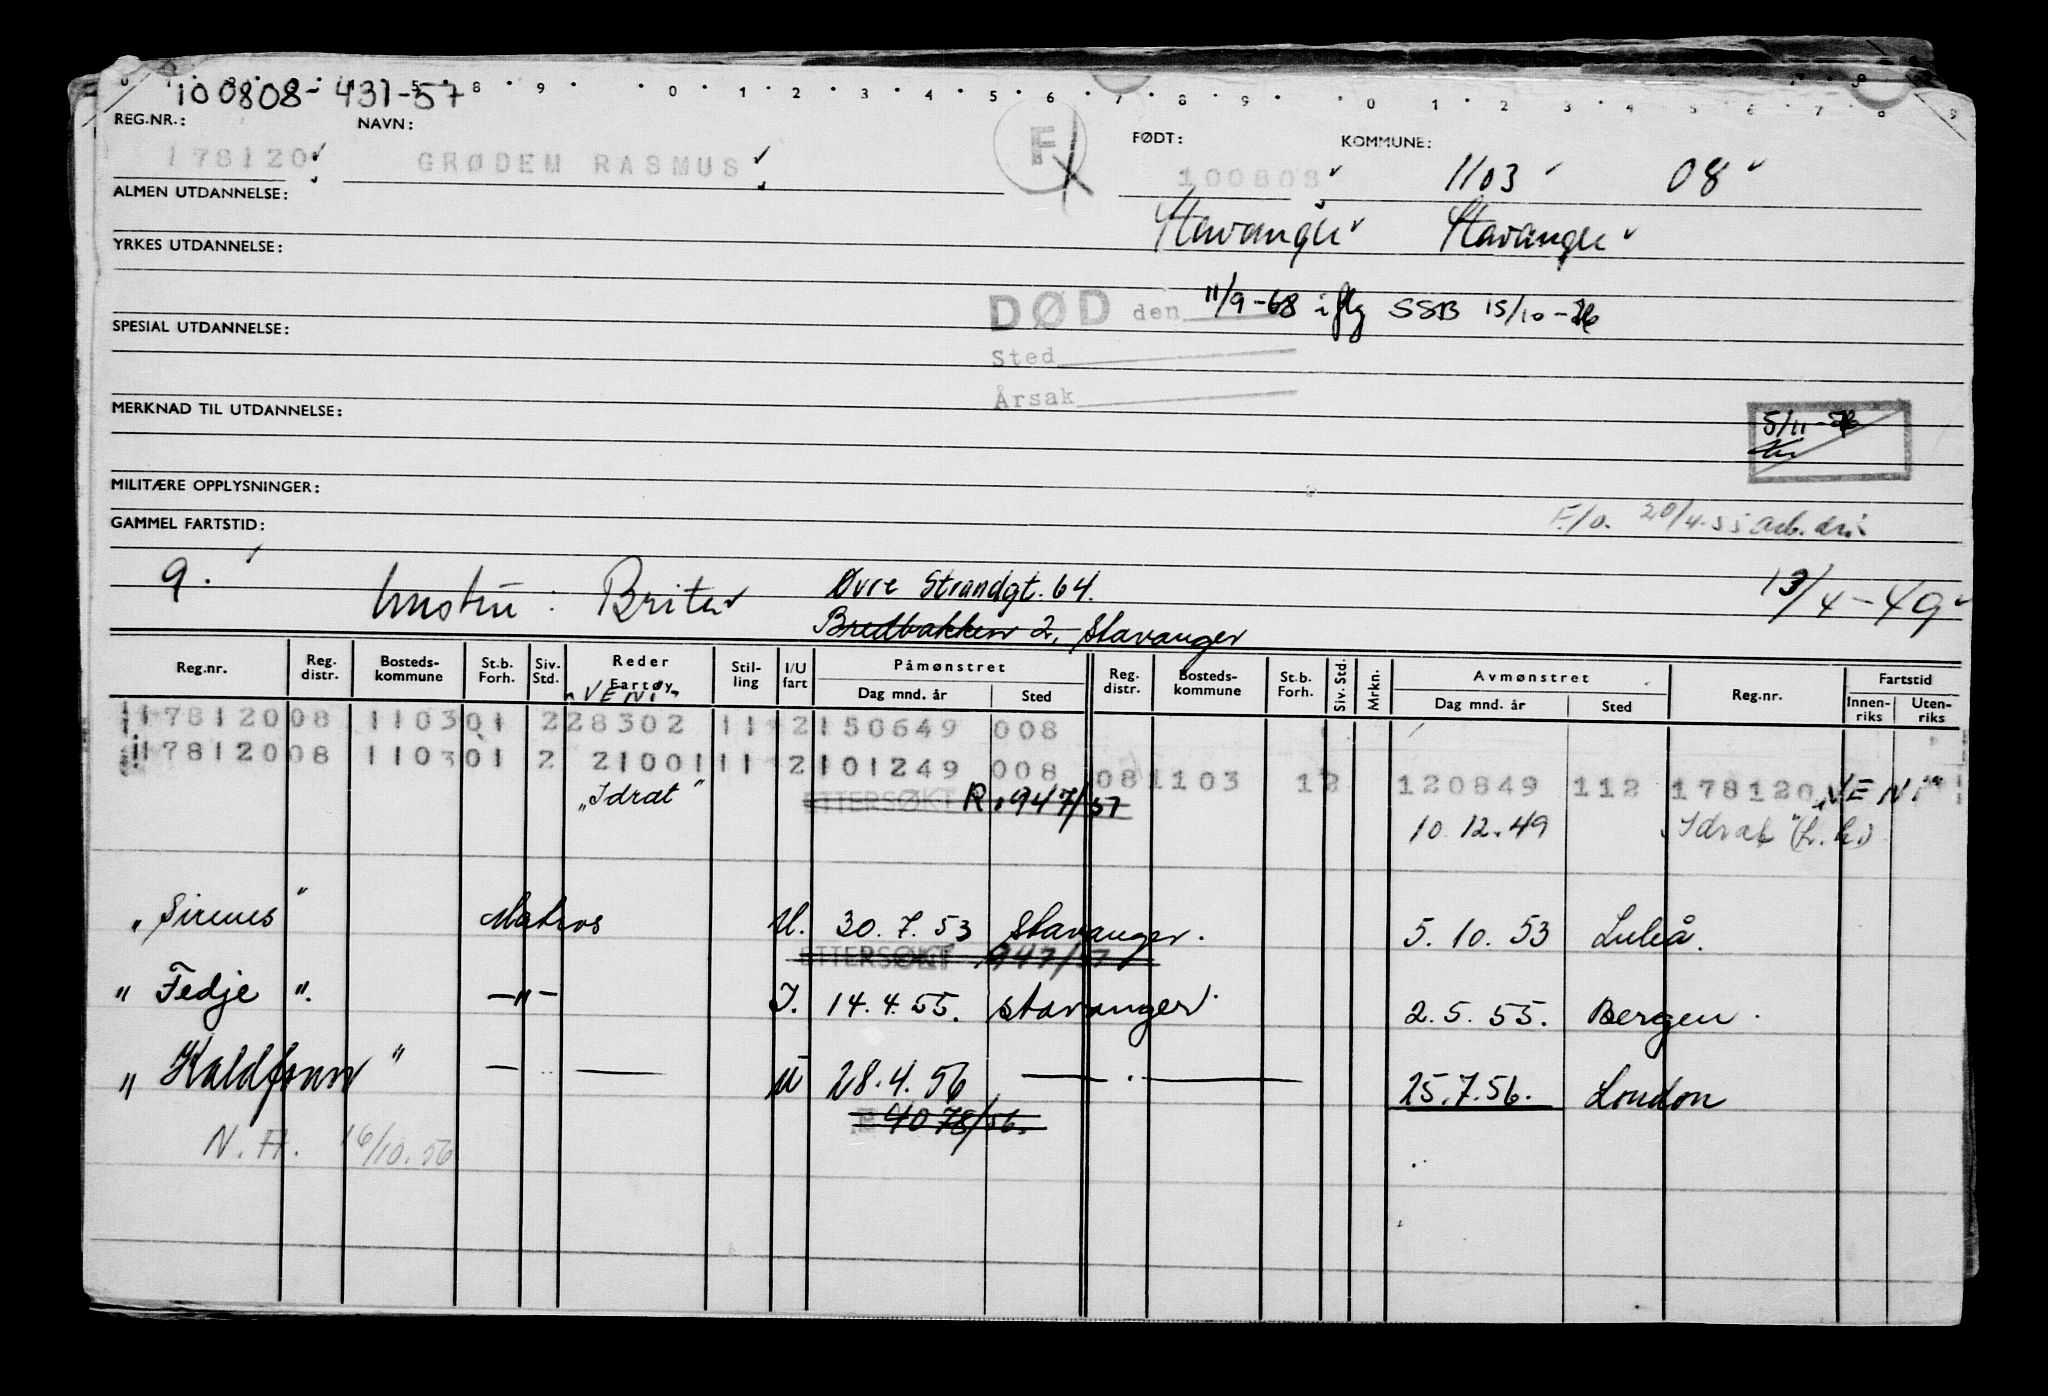 100808-431-57
REG.NR.: NAVN: FØDT: KOMMUNE:
178120 GRØDEM RASMUS F 100808 1103 08
ALMEN UTDANNELSE:
Stavanger Stavanger
YRKES UTDANNELSE:
DØD den 11/9-68 iflg SSB 15/10-
SPESIAL UTDANNELSE:
Sted
Årsak
MERKNAD TIL UTDANNELSE:
5/11-
MILITÆRE OPPLYSNINGER:
F/o. 20/4-55 arb. dir.
GAMMEL FARTSTID:
9. hustru: Brita Øvre Strandgt. 64. 13/4-49
Bredbakken 2, Stavanger
Reg.nr. Reg. distr. Bosteds-kommune St.b. Forh. Siv. Std. Reder Fartøy Stil-ling I/U fart Påmønstret Dag mnd. år Sted Reg. distr. Bosteds-kommune St.b. Forh. Siv. Std. Mrkn. Avmønstret Dag mnd. år Sted Reg.nr. Fartstid Innen-riks Uten-riks
"VENI"
178120 08 1103 01 2 28302 11 2 150649 008
178120 08 1103 01 2 21001 11 2 101249 008 08 1103 12 120849 112 178120 "VENI"
"Idrat" ETTERSØKT R. 947/57 10.12.49 "Idrat"
"Sirenes" Matros U. 30.7.53 Stavanger. 5.10.53 Luleå.
ETTERSØKT 947/57
"Fedje". —"— I. 14.4.55. Stavanger 2.5.55. Bergen.
"Kaldfonn" — — U 28.4.56 — . — 25.7.56. London
4078/56.
N.A. 16/10.56